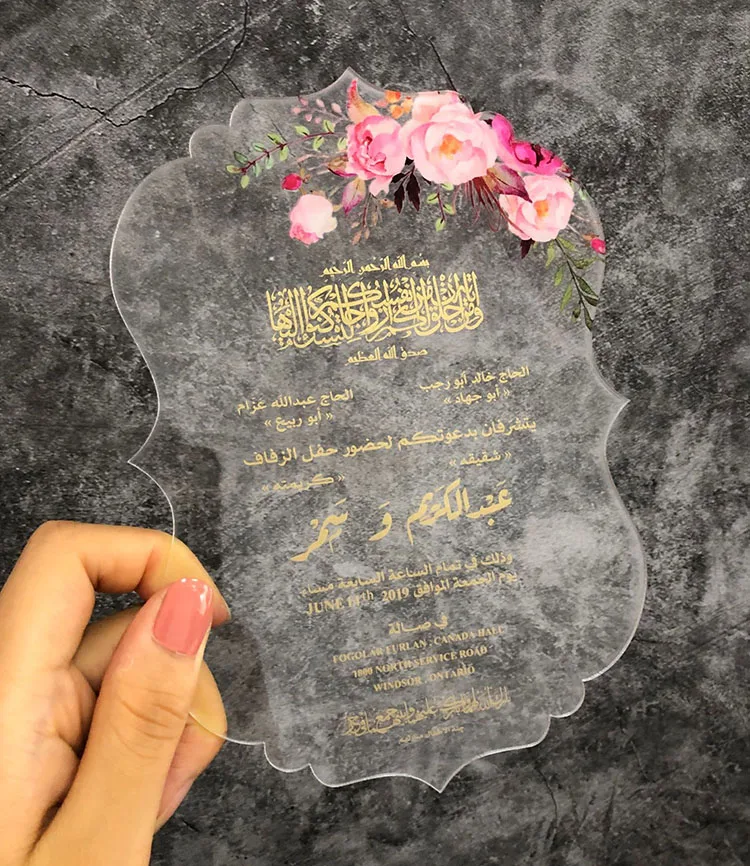 بسم الله الرحمن الرحيم
ومن آياته أن خلق لكم من أنفسكم أزواجا لتسكنوا إليها
صدق الله العظيم
الحاج خالد أبو رجب
« أبو جهاد »
الحاج عبدالله عزام
« أبو ربيع »
يتشرفان بدعوتكم لحضور حفل الزفاف
« شقيقه »
« كريمته »
عَبْدالكريم وَ سَمَرْ
وذلك في تمام الساعة السابعة مساء
يوم الجمعة الموافق JUNE 14th 2019
في صالة
FOGOLAR FURLAN , CANADA HALL
1800 NORTH SERVICE ROAD
WINDSOR , ONTARIO